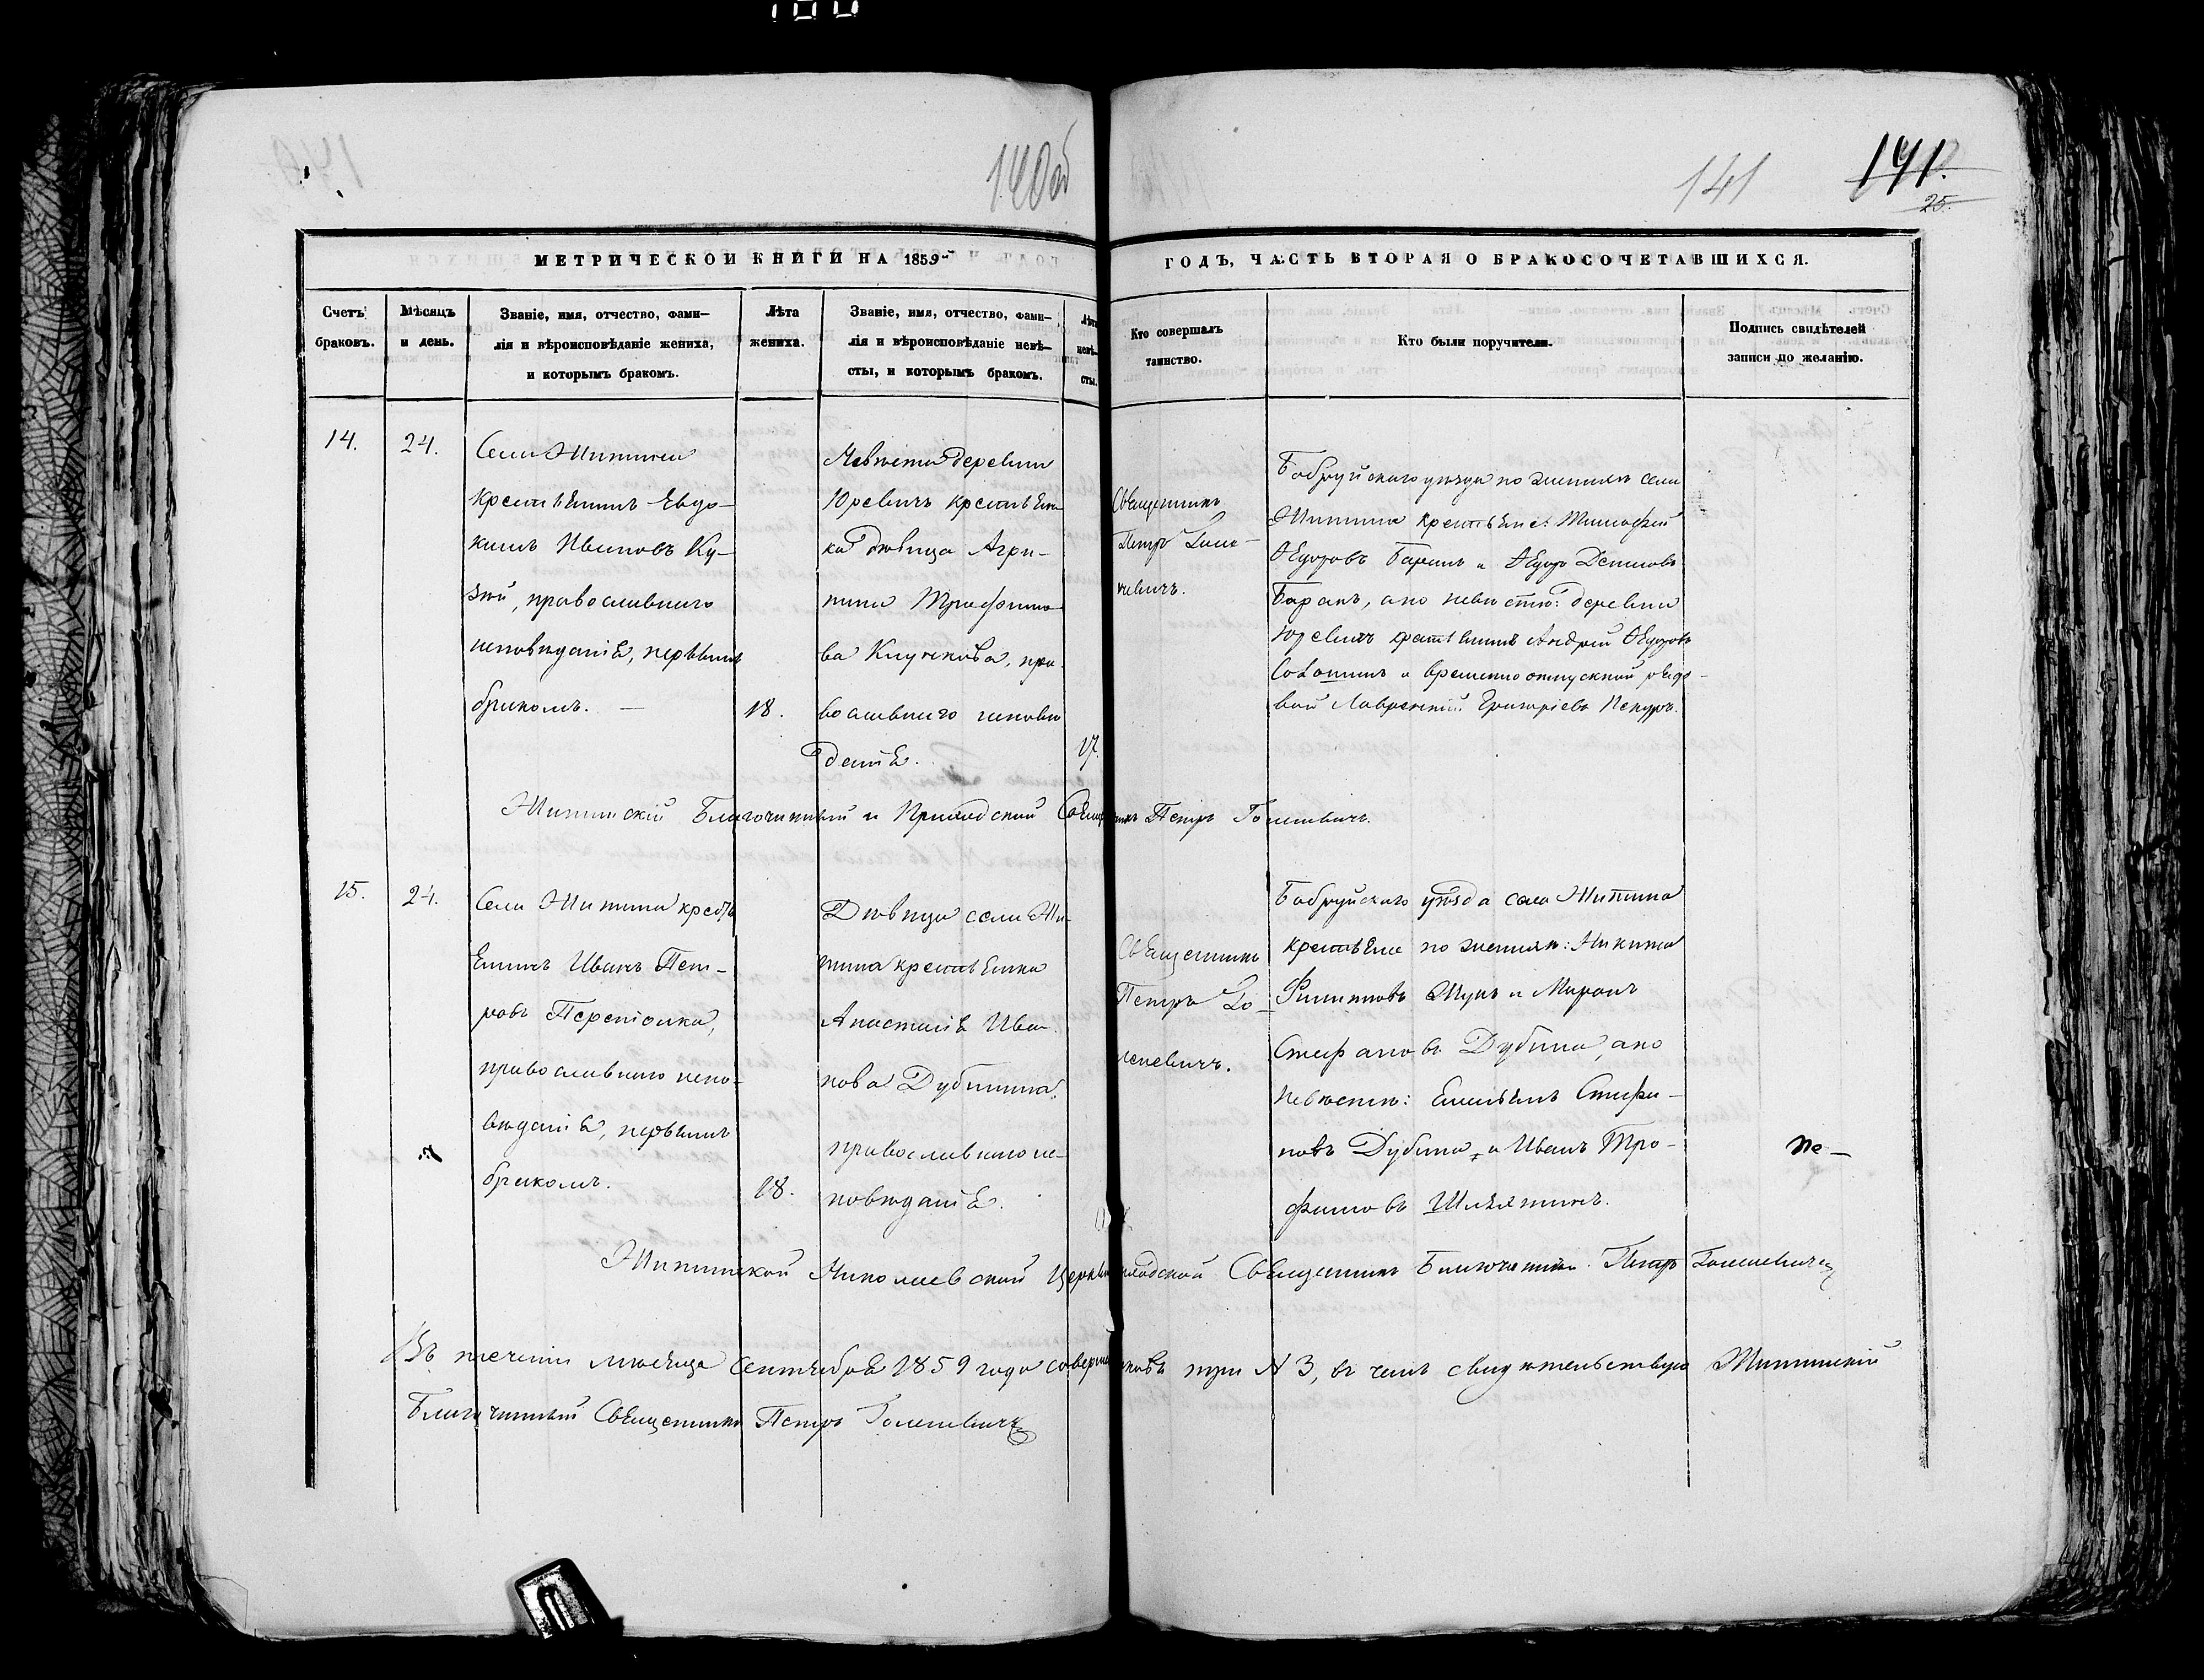 140об
141
141.
25.
МЕТРИЧЕСКОЙ КНИГИ НА 1859й
ГОДЪ, ЧАСТЬ ВТОРАЯ О БРАКОСОЧЕТАВШИХСЯ.
Счетъ браковъ.
Мѣсяцъ и день.
Званіе, имя, отчество, фами-
лія и вѣроисповѣданіе жениха,
и которымъ бракомъ.
Лѣта
жениха.
Званіе, имя, отчество, фами-
лія и вѣроисповѣданіе невѣ-
сты, и которымъ бракомъ.
Лѣта
невѣ-
сты.
Кто совершалъ
таинство.
Кто были поручители.
Подпись свидѣтелей
записи по желанію.
14.
24.
Села Житина
крестьянинъ Евдо-
кимъ Ивановъ Ку-
зей, православнаго
исповѣданія, первымъ
бракомъ. —
18.
Невѣста деревни
Юревичъ крестьян
ка дѣвица Агри-
пина Трофимо
ва Клучкова, пра-
вославнаго исповѣ
данія.
17.
Священникъ
Петръ Голе-
невичъ.
Бобруйскаго уѣзда по женихѣ села
Житина крестьяне: Тимофей
Ѳедоровъ Баранъ и Ѳедоръ Денисовъ
Баранъ, а по невѣстѣ: деревни
Юревичъ крестьянинъ Андрей Ѳедоровъ
и временно отпускной рядо-
вой Лаврентій Григоріевъ
Житинскій Благочинный и Приходской Священникъ Петръ Голеневичъ.
15.
24.
Села Житина кресть
янинъ Иванъ Пет-
ровъ
православнаго испо-
вѣданія, первымъ
бракомъ.
18.
Дѣвица села Жи-
тина крестьянка
Анастасія Ива-
нова Дубинина
православнаго ис-
повѣданія.
Священникъ
Петръ Го-
леневичъ.
Бобруйскаго уѣзда села Житина
крестьяне по женихѣ: Никита
Филиповъ Жукъ и Миронъ
Стефановъ Дубина, а по
невѣстѣ: Емельянъ Стефа-
новъ Дубина, и Иванъ Тро-
фимовъ
Житинской Николаевской Церкви приходской Священникъ Благочинный Петръ Голеневичъ
Въ теченіи мѣсяца Сентября 1859 года совершено браковъ три № 3, въ чемъ свидѣтельствую Житинскій
Благочинный Священникъ Петръ Голеневичъ